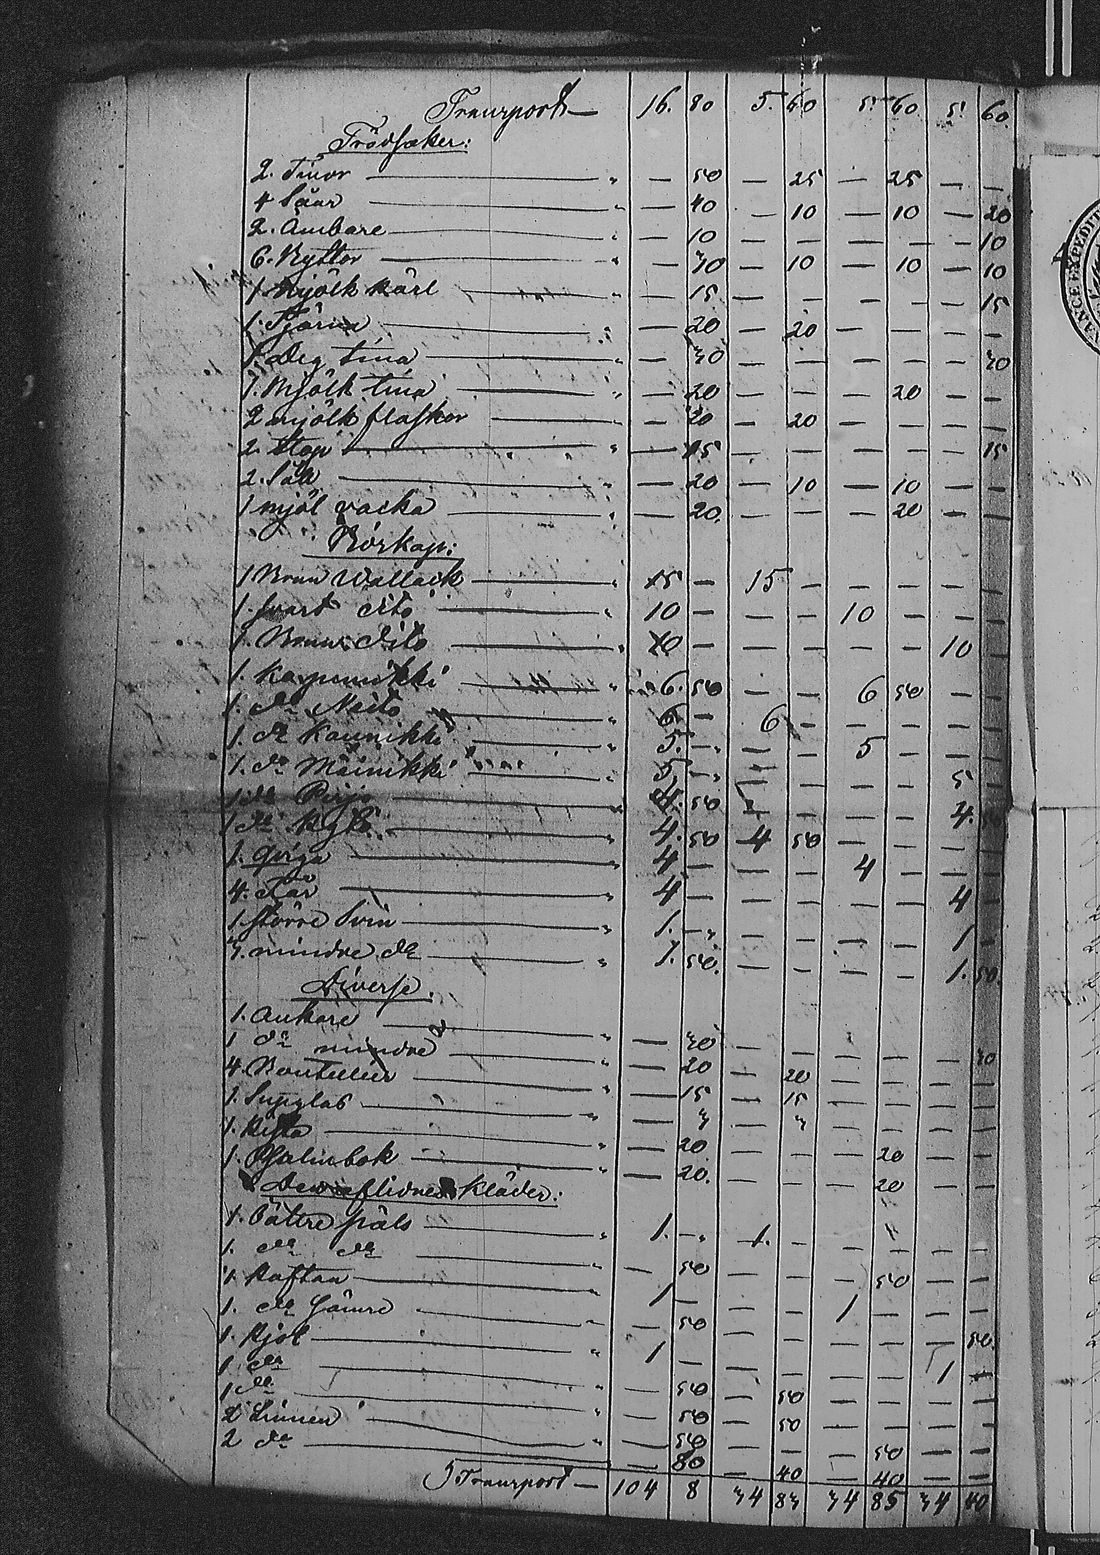 Transport — 16. 80 5. 60 5. 60 5. 60
Trädsaker:
2. Tinor — " — 50 — 25 — 25 — —
4 Såar — " — 40 — 10 — 10 — 20
2. Ämbare — " — 10 — — — — — 10
6. Byttor — " — 30 — 10 — 10 — 10
1 Mjölk kärl — " — 15 — — — — — 15
1. Tjärna — " — 20 — 20 — — — —
1 Deg tina — " — 30 — — — — — 30
1. Mjölk tina — " — 20 — — — 20 — —
2 mjölk flaskor — " — 20 — 20 — — — —
2. Stop — " — 15 — — — — — 15
2. Såll — " — 20 — 10 — 10 — —
1 mjöl vacka — " — 20. — — — 20 — —
Börskap:
1 Brun Wallack — " 15 — 15 — — — — —
1. svart dito — " 10 — — — 10 — — —
1. Brun dito — " 10 — — — — — 10 —
1. Ko — " 6. 50 — — 6 50 — —
1. do — " 6 — 6 — — — — —
1. do Kaunikki — " 5. — — — 5 — — —
1. do Mainikki — " 5. — — — — — 5 —
1 do — " 4. 50 — — — — 4.
1 do — " 4. 50 4 50 — — — —
1. Qviga — " 4 — — — 4 — — —
4. Får — " 4 — — — — — 4 —
1 större Svin — " 1. — — — — — 1 —
3. mindre do — " 1. 50. — — — — 1. 50.
Diverse.
1. Ankare — " — 30 — — — — — 30
1 do mindre — " — 20 — 20 — — — —
4 Bouteller — " — 15 — 15 — — — —
1. Supglas — " — 3 — 3 — — — —
1. — " — 20 — — — 20 — —
1. Psalmbok — " — 20. — — — 20 — —
Den aflidnes Kläder:
1. Bättre päls — " 1. — 1. — — — — —
1. do do — — 50 — — — 50 — —
1. Kaftan — " 1 — — — 1 — — —
1. do Sämre — — 50 — — — — — 50.
1. Kjol — " 1 — — — — — 1 —
1 do — — 50 — 50 — — — —
1 do — " — 50 — 50 — — — —
2 Linnen — " — 50 — — — 50 — —
2 do — — 80 — 40 — 40 — —
Transport — 104 8 34 83 34 85 34 40